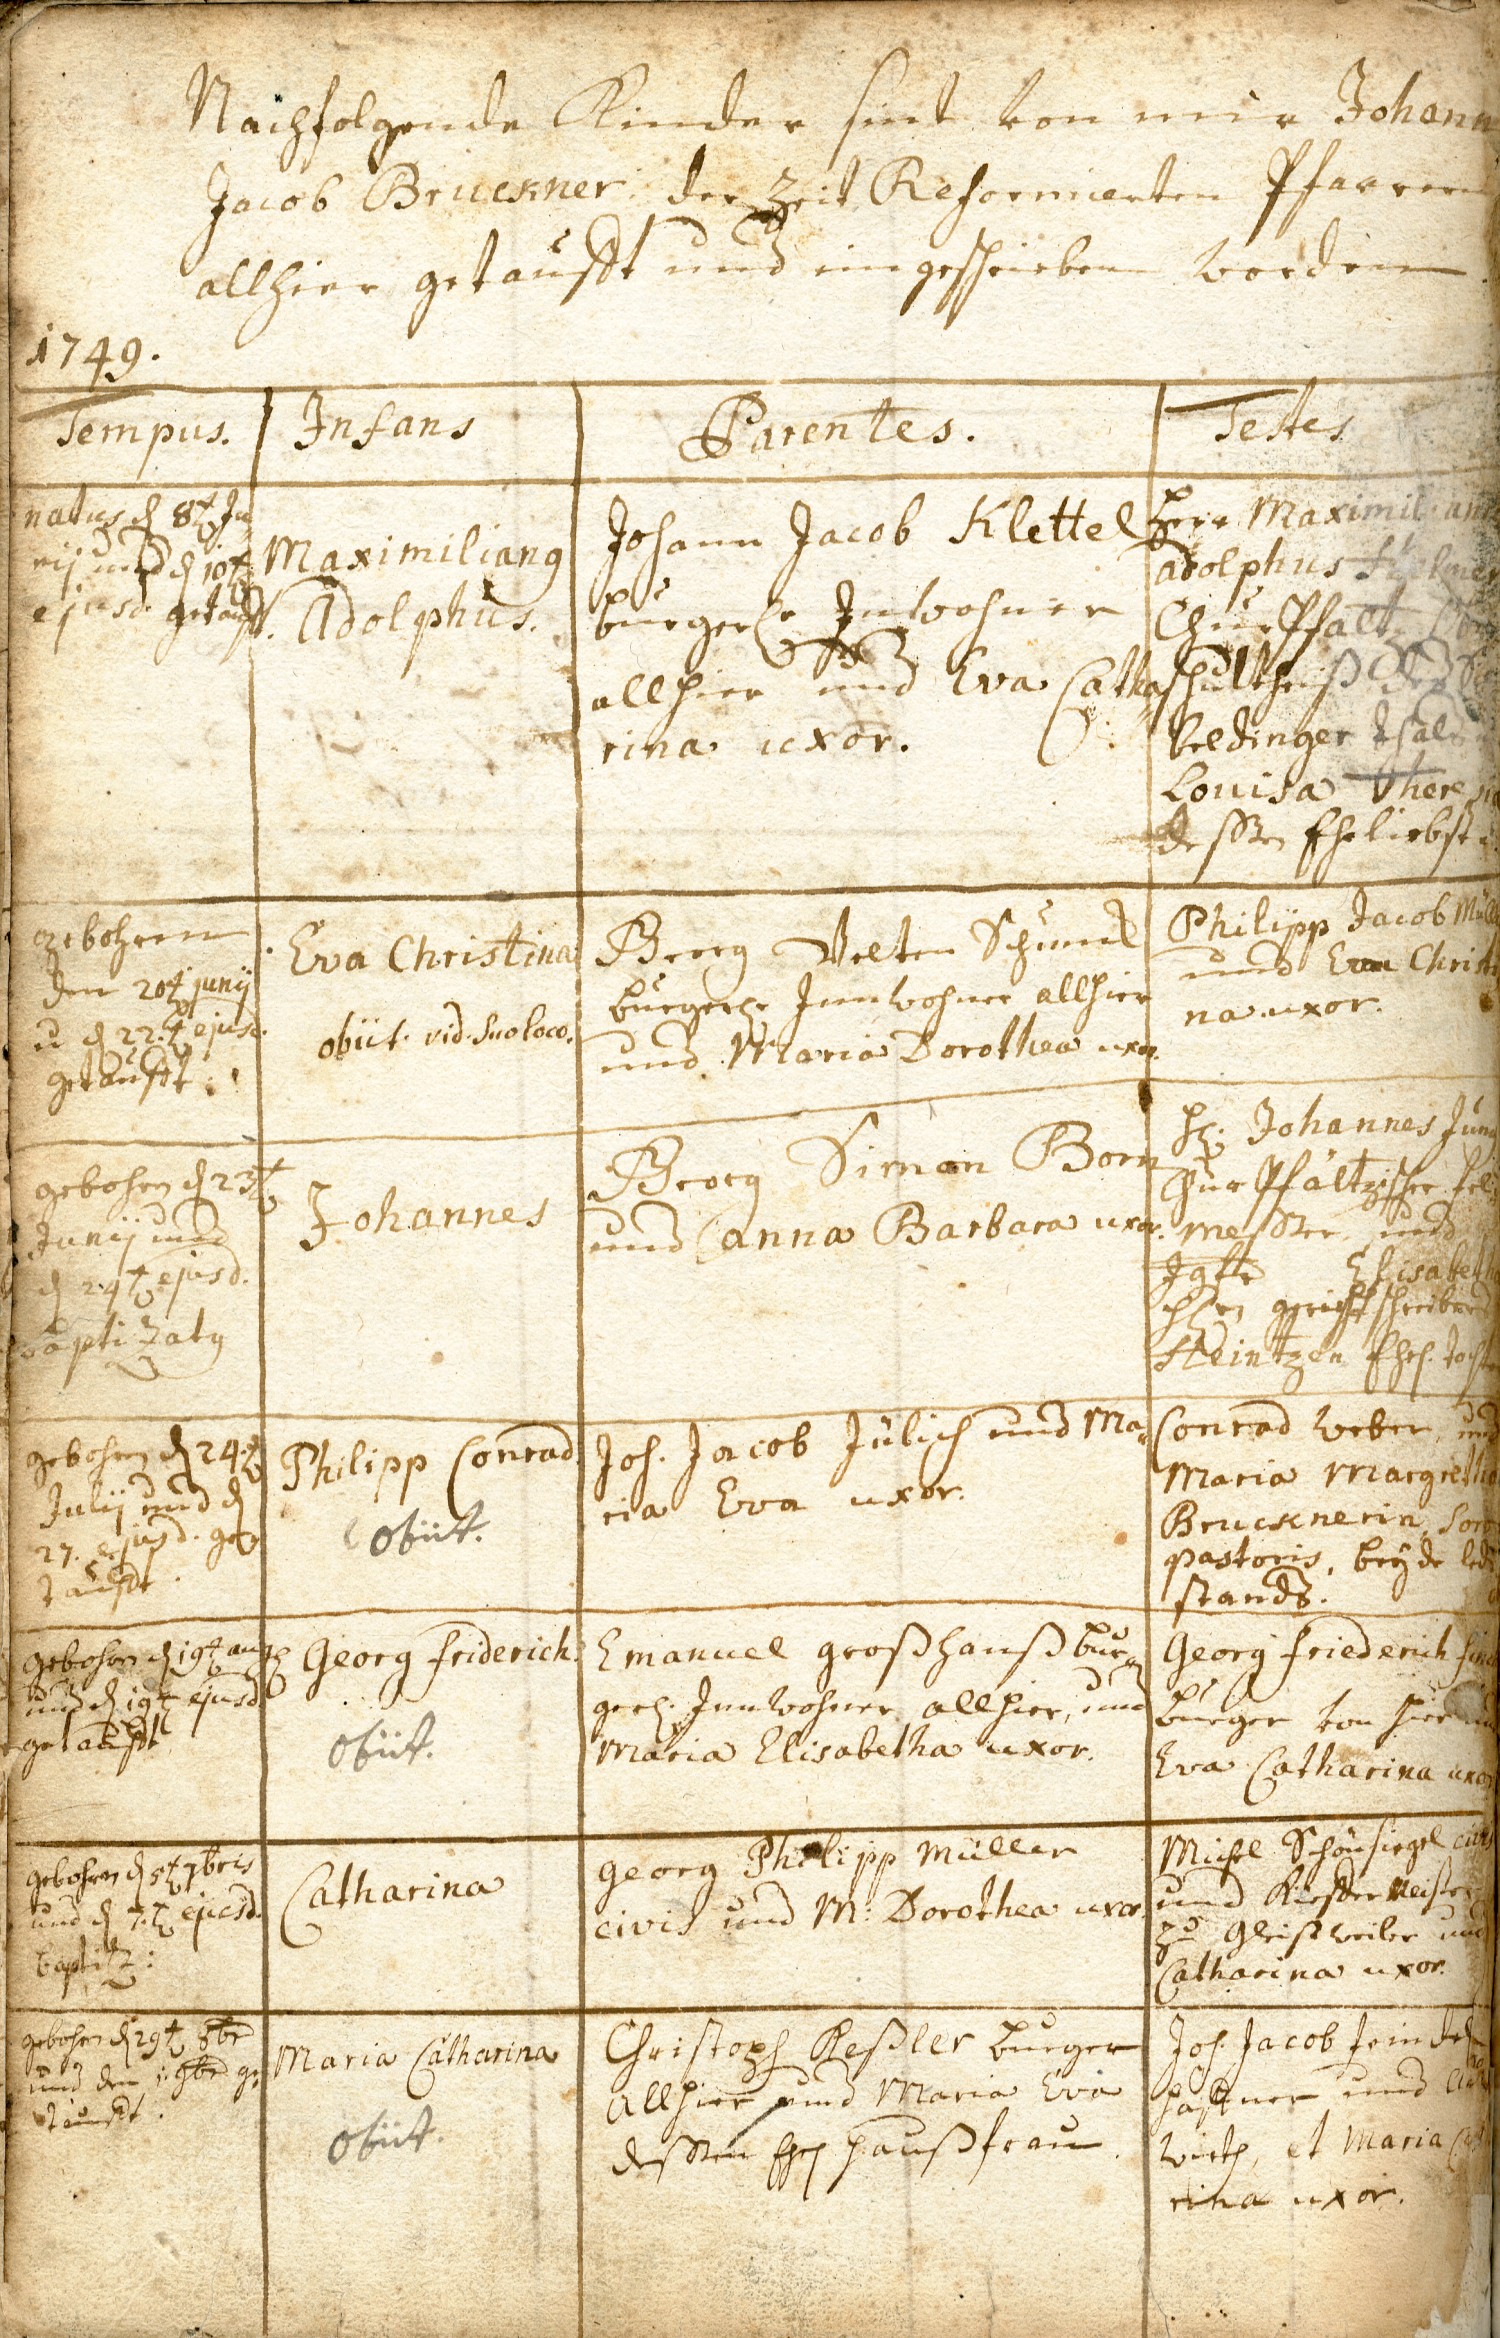 Nachfolgende Kinder sint von mir Johann
Jacob Bruckner der Zeit Reformierten Pfarrern
allhier getaufft und eingeschrieben worden.
1749.
Tempus. Infans Parentes. Testes
natus d 8t Ju
nij und d 10t
ejusd. getaufft.
Maximilianus
Adolphus.
Johann Jacob Klettel
burgerl. Inwohner
allhier und Eva Catha
rina uxor.
Herr Maximilian
adolphus
ChurPfaltz
schultheiß
Louisa Theresia
dessen Eheliebste
gebohren
den 20t junij
u d 22t ejusd.
getaufft.
Eva Christina
obiit. vid. suo loco.
Georg Velten Schunck
burgerl. Innwohner allhier
und Maria Dorothea uxor.
Philipp Jacob Müll
und Eva Christi
na uxor.
gebohren d 23t
Junij und
d 24t ejusd.
baptizatus
Johannes
Georg Simon Born
und anna Barbara uxor.
H. Johannes Jung
ChurPfältzischer
messer und
Jgfr Elisabetha
gerichtschreibers
Steintzen Ehel. Tocht
gebohren d 24t
Julij und d
27. ejusd. ge
taufft.
Philipp Conrad.
obiit.
Joh. Jacob Jülich und Ma
ria Eva uxor.
Conrad Weber, und
Maria Margretha
Brucknerin, Soror
pastoris, beyde led
stands.
gebohren d 19t aug
und d 19t ejusd
getaufft
Georg friderich.
obiit.
Emanuel Großhanß bur
gerl. Innwohner allhier, und
Maria Elisabetha uxor.
Georg friederich
burger von hier und
Eva Catharina uxor
gebohren d 5t 7bris
und d 7t ejusd.
baptiz:
Catharina
Georg Philipp Müller
civis und M: Dorothea uxor.
Michel Schönsiegel civis
und Kiefer Meister
zu Gleisweiler und
Catharina uxor.
gebohren d 29t 8br
und den 1. 9br ge
taufft.
Maria Catharina
obiit.
Christoph Keßler burger
allhier und Maria Eva
dessen Ehel haußfrau.
Joh. Jacob
haffner und
wirth, et Maria Catha
rina uxor.